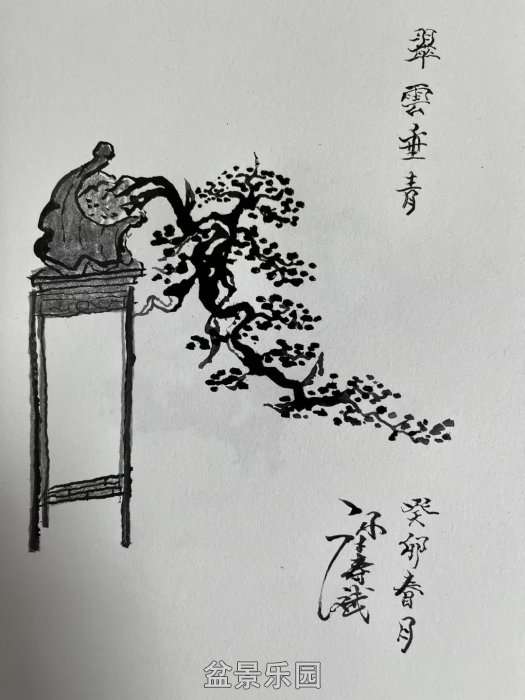 翠雲垂青
癸卯春月
盆景乐园